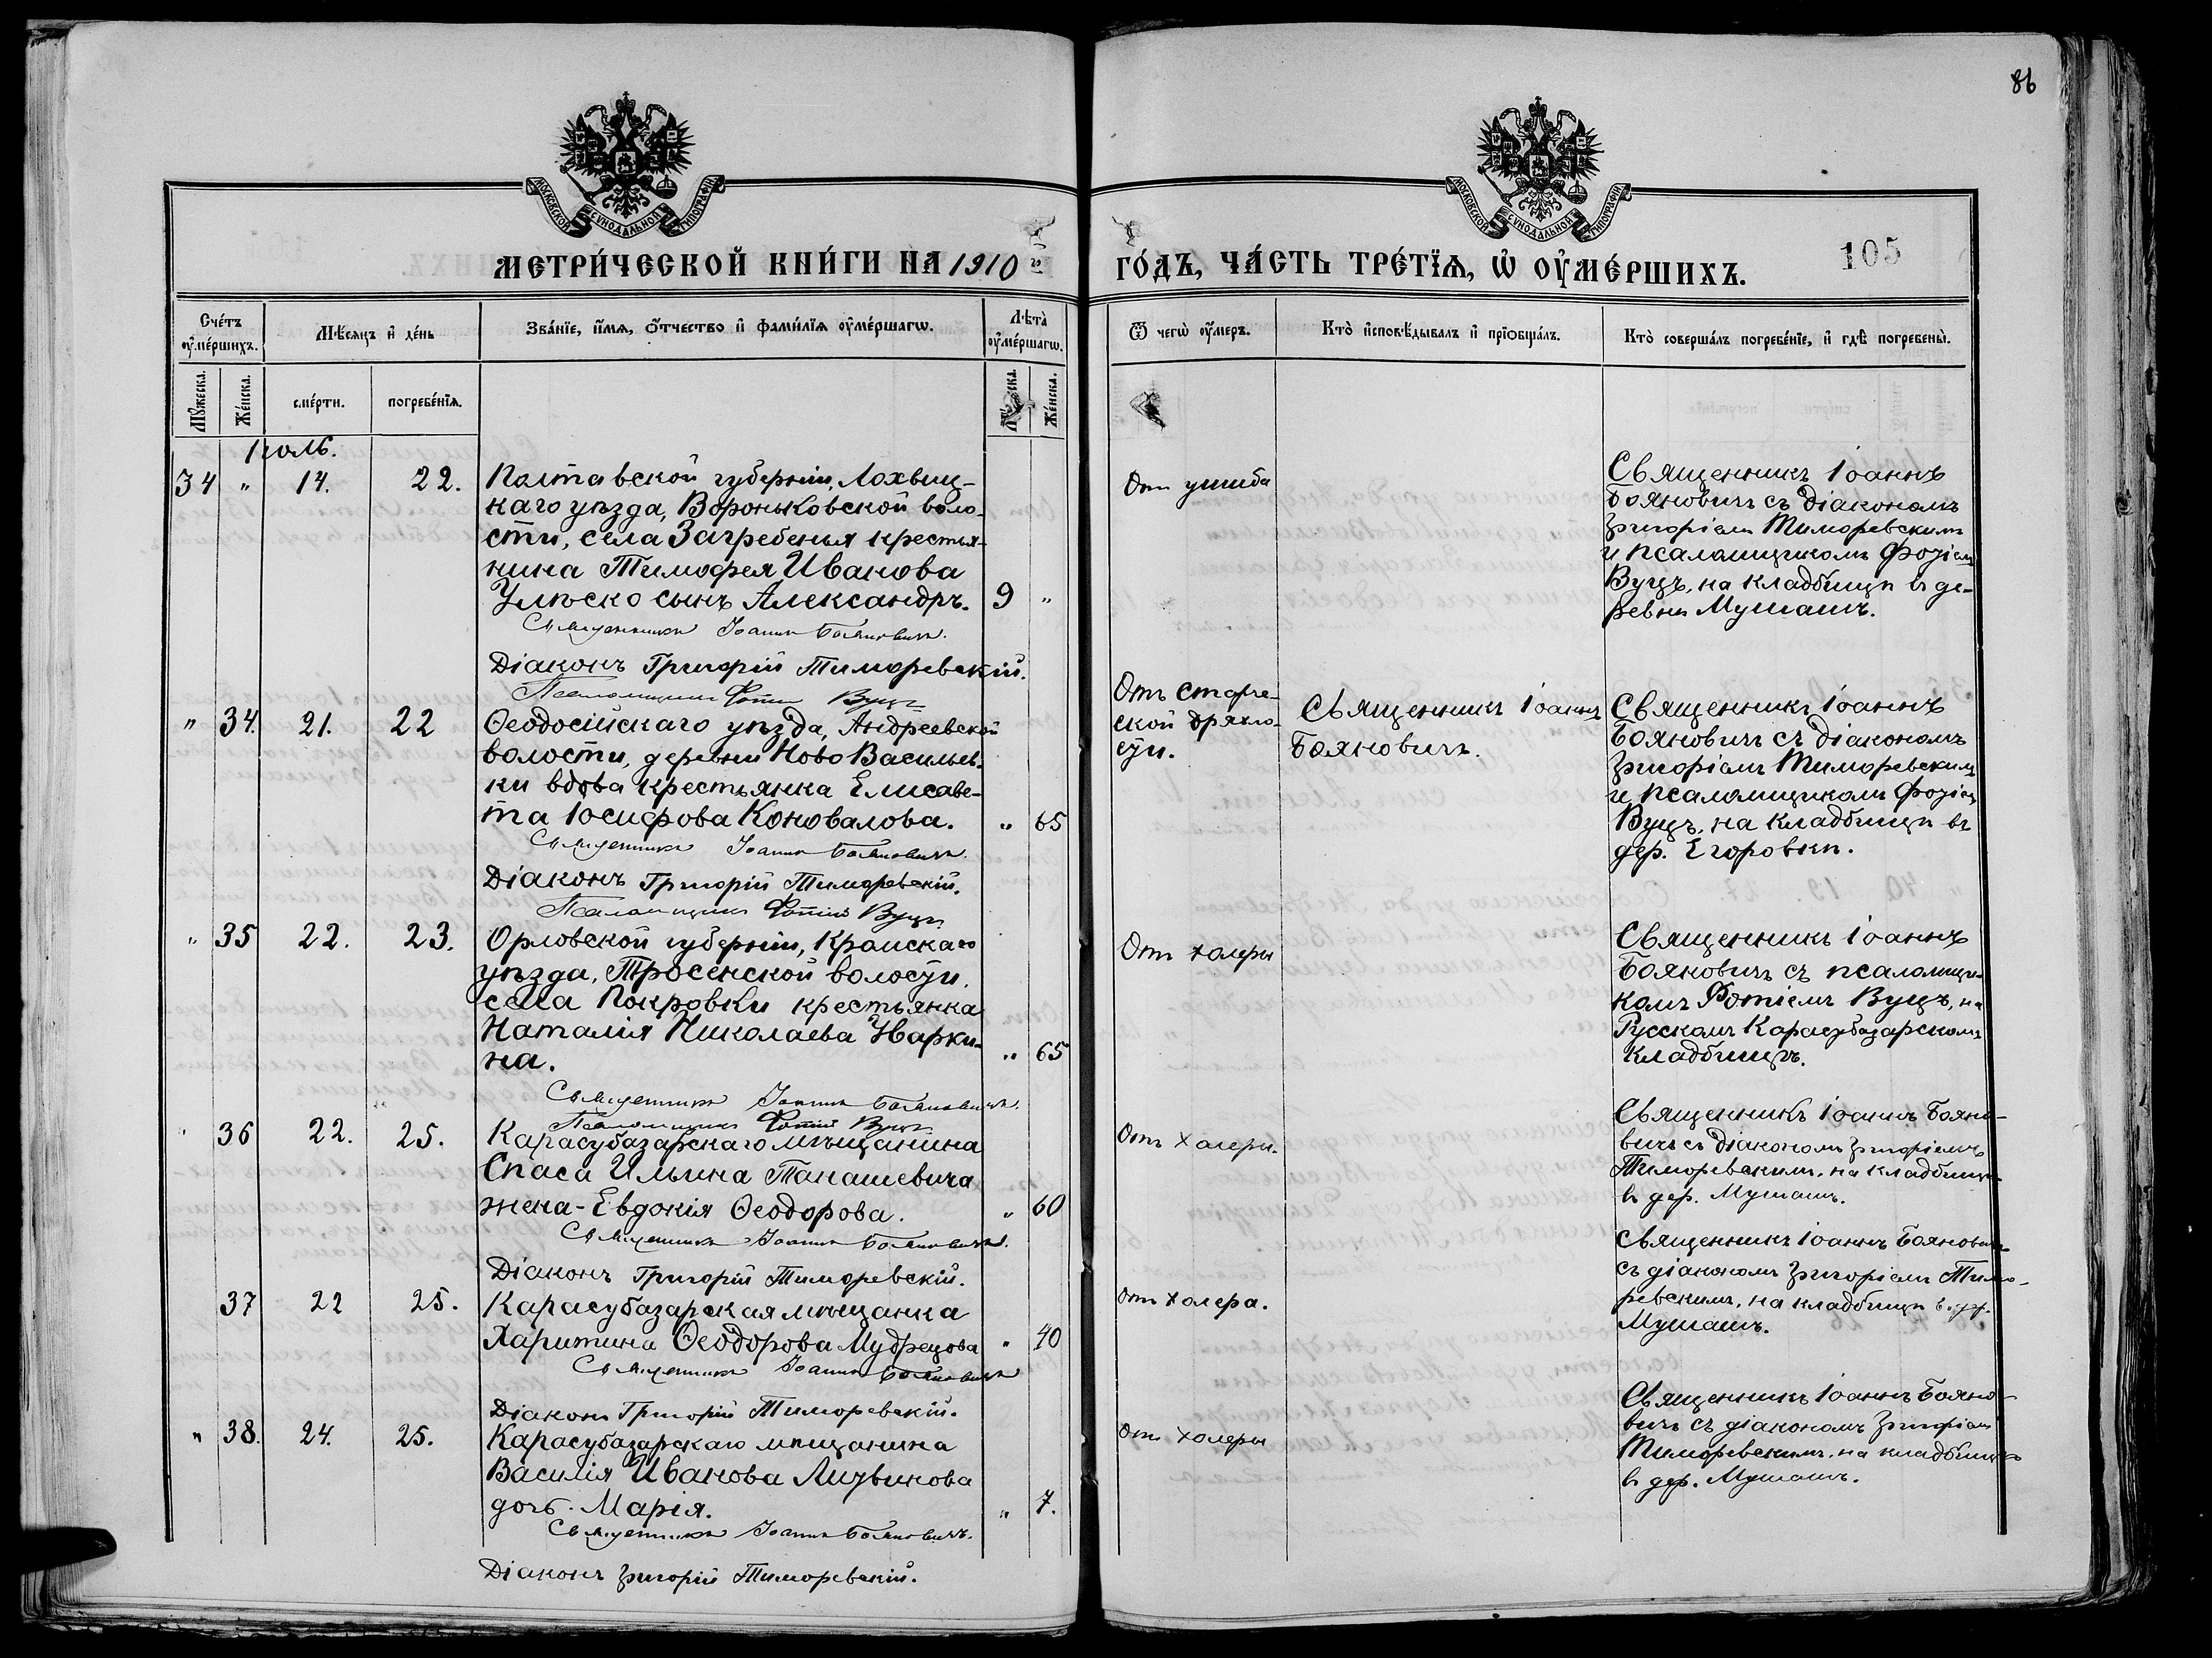 86
МОСКОВСКОЙ СѴНОДАЛЬНОЙ ТИПОГРАФІИ
МОСКОВСКОЙ СѴНОДАЛЬНОЙ ТИПОГРАФІИ
МЕТРИ́ЧЕСКОЙ КНИ́ГИ НА 1910 й
ГО́ДЪ, ЧА́СТЬ ТРЕ́ТЇѦ, Ѡ҆ ОУ҆МЕ́РШИХЪ.
105
Сче́тъ оу҆ме́ршихъ.
Мѣ́сѧцъ и҆ де́нь
Зва́нїе, и҆́мѧ, ѻ҆́тчество и҆ фами́лїѧ оу҆ме́ршагѡ.
Лѣ́та оу҆ме́ршагѡ.
Ѿ чегѡ̀ оу҆́меръ.
Кто̀ и҆сповѣ́дывалъ и҆ прїѡбща́лъ.
Кто̀ соверша́лъ погребе́нїе, и҆ гдѣ̀ погребены̀.
Мꙋ́жеска.
Же́нска.
сме́рти.
погребе́нїѧ.
Же́нска.
Іюль.
34 " 14. 22.
Полтавской губерніи, Лохвиц-
каго уѣзда, Вороньковской воло-
сти, села Загребенья крестья-
нина Тимофея Иванова
сынъ Александръ. 9 "
Священникъ Іоаннъ Бояновичъ.
Діаконъ Григорій Тиморевскій.
Псаломщикъ Фотій Вуцъ
Отъ ушиба
Священникъ Іоаннъ
Бояновичъ съ діакономъ
Григоріемъ Тиморевскимъ
и псаломщикомъ Фотіемъ
Вуцъ, на кладбищѣ въ де-
ревнѣ Мушашъ.
" 34. 21. 22
Ѳеодосійскаго уѣзда, Андреевской
волости, деревни Ново Васильев-
ки вдова крестьянка Елисаве-
та Іосифова Коновалова. " 65
Священникъ Іоаннъ Бояновичъ.
Діаконъ Григорій Тиморевскій.
Псаломщикъ Фотій Вуцъ
Отъ старче-
ской дряхло-
сти.
Священникъ Іоаннъ
Бояновичъ.
Священникъ Іоаннъ
Бояновичъ съ діакономъ
Григоріемъ Тиморевскимъ
и псаломщикомъ Фотіемъ
Вуцъ, на кладбищѣ въ
дер. Егоровкѣ.
" 35 22. 23.
Орловской губерніи, Кромскаго
уѣзда, Тросенской волости,
села Покровки крестьянка
Наталія Николаева
на. " 65
Священникъ Іоаннъ Бояновичъ.
Псаломщикъ Фотій Вуцъ
Отъ холеры
Священникъ Іоаннъ
Бояновичъ съ псаломщи-
комъ Фотіемъ Вуцъ, на
Русскомъ Карасубазарскомъ
кладбищѣ.
" 36 22. 25.
Карасубазарскаго мѣщанина
Спаса Ильина Танашевича
жена - Евдокія Ѳеодорова. " 60
Священникъ Іоаннъ Бояновичъ.
Діаконъ Григорій Тиморевскій.
Отъ холеры.
Священникъ Іоаннъ Бояно-
вичъ съ діакономъ Григоріемъ
Тиморевскимъ, на кладбищѣ
въ дер. Мушашъ.
37 22 25.
Карасубазарская мѣщанка
Харитина Ѳеодорова Мудрецова " 40
Священникъ Іоаннъ Бояновичъ
Діаконъ Григорій Тиморевскій.
Отъ холера.
Священникъ Іоаннъ Бояновичъ
съ діакономъ Григоріемъ Тимо-
ревскимъ, на кладбищѣ въ дер.
Мушашъ.
" 38. 24. 25.
Карасубазарскаго мѣщанина
Василія Иванова Литвинова
дочь - Марія. " 7.
Священникъ Іоаннъ Бояновичъ.
Діаконъ Григорій Тиморевскій.
Отъ холеры
Священникъ Іоаннъ Бояно-
вичъ съ діакономъ Григоріемъ
Тиморевскимъ, на кладбищѣ
въ дер. Мушашъ.